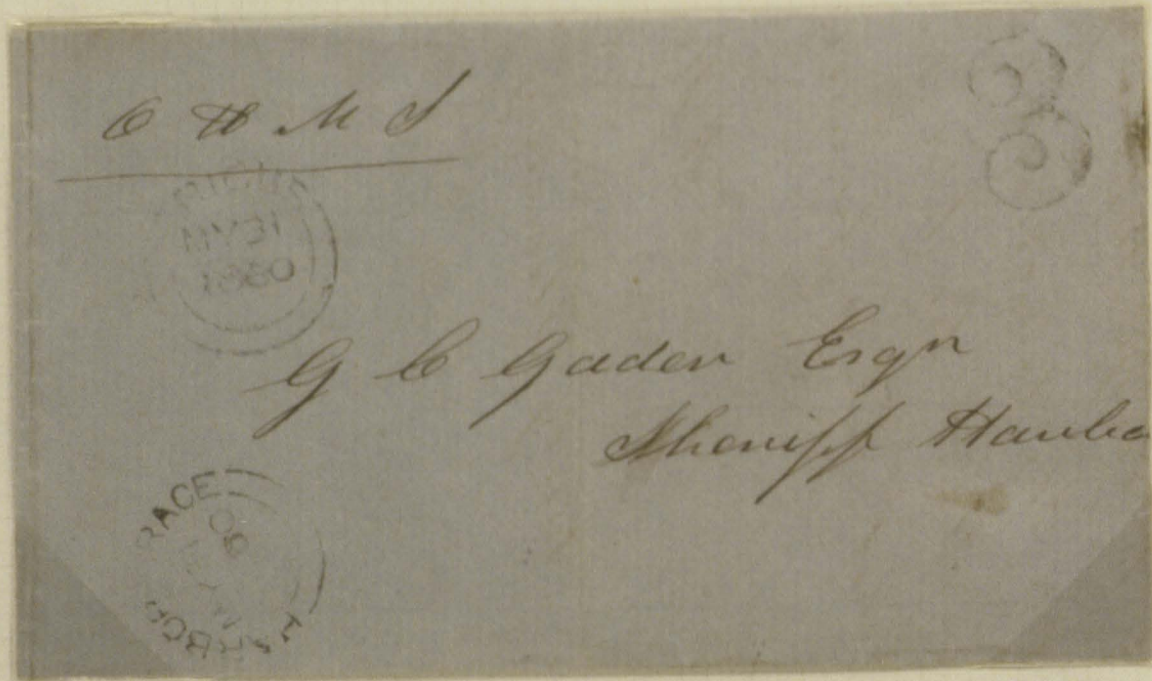 O H M S
MY 31
1880
G C Gaden Esqr
Sheriff Harbo
HARBOR GRACE